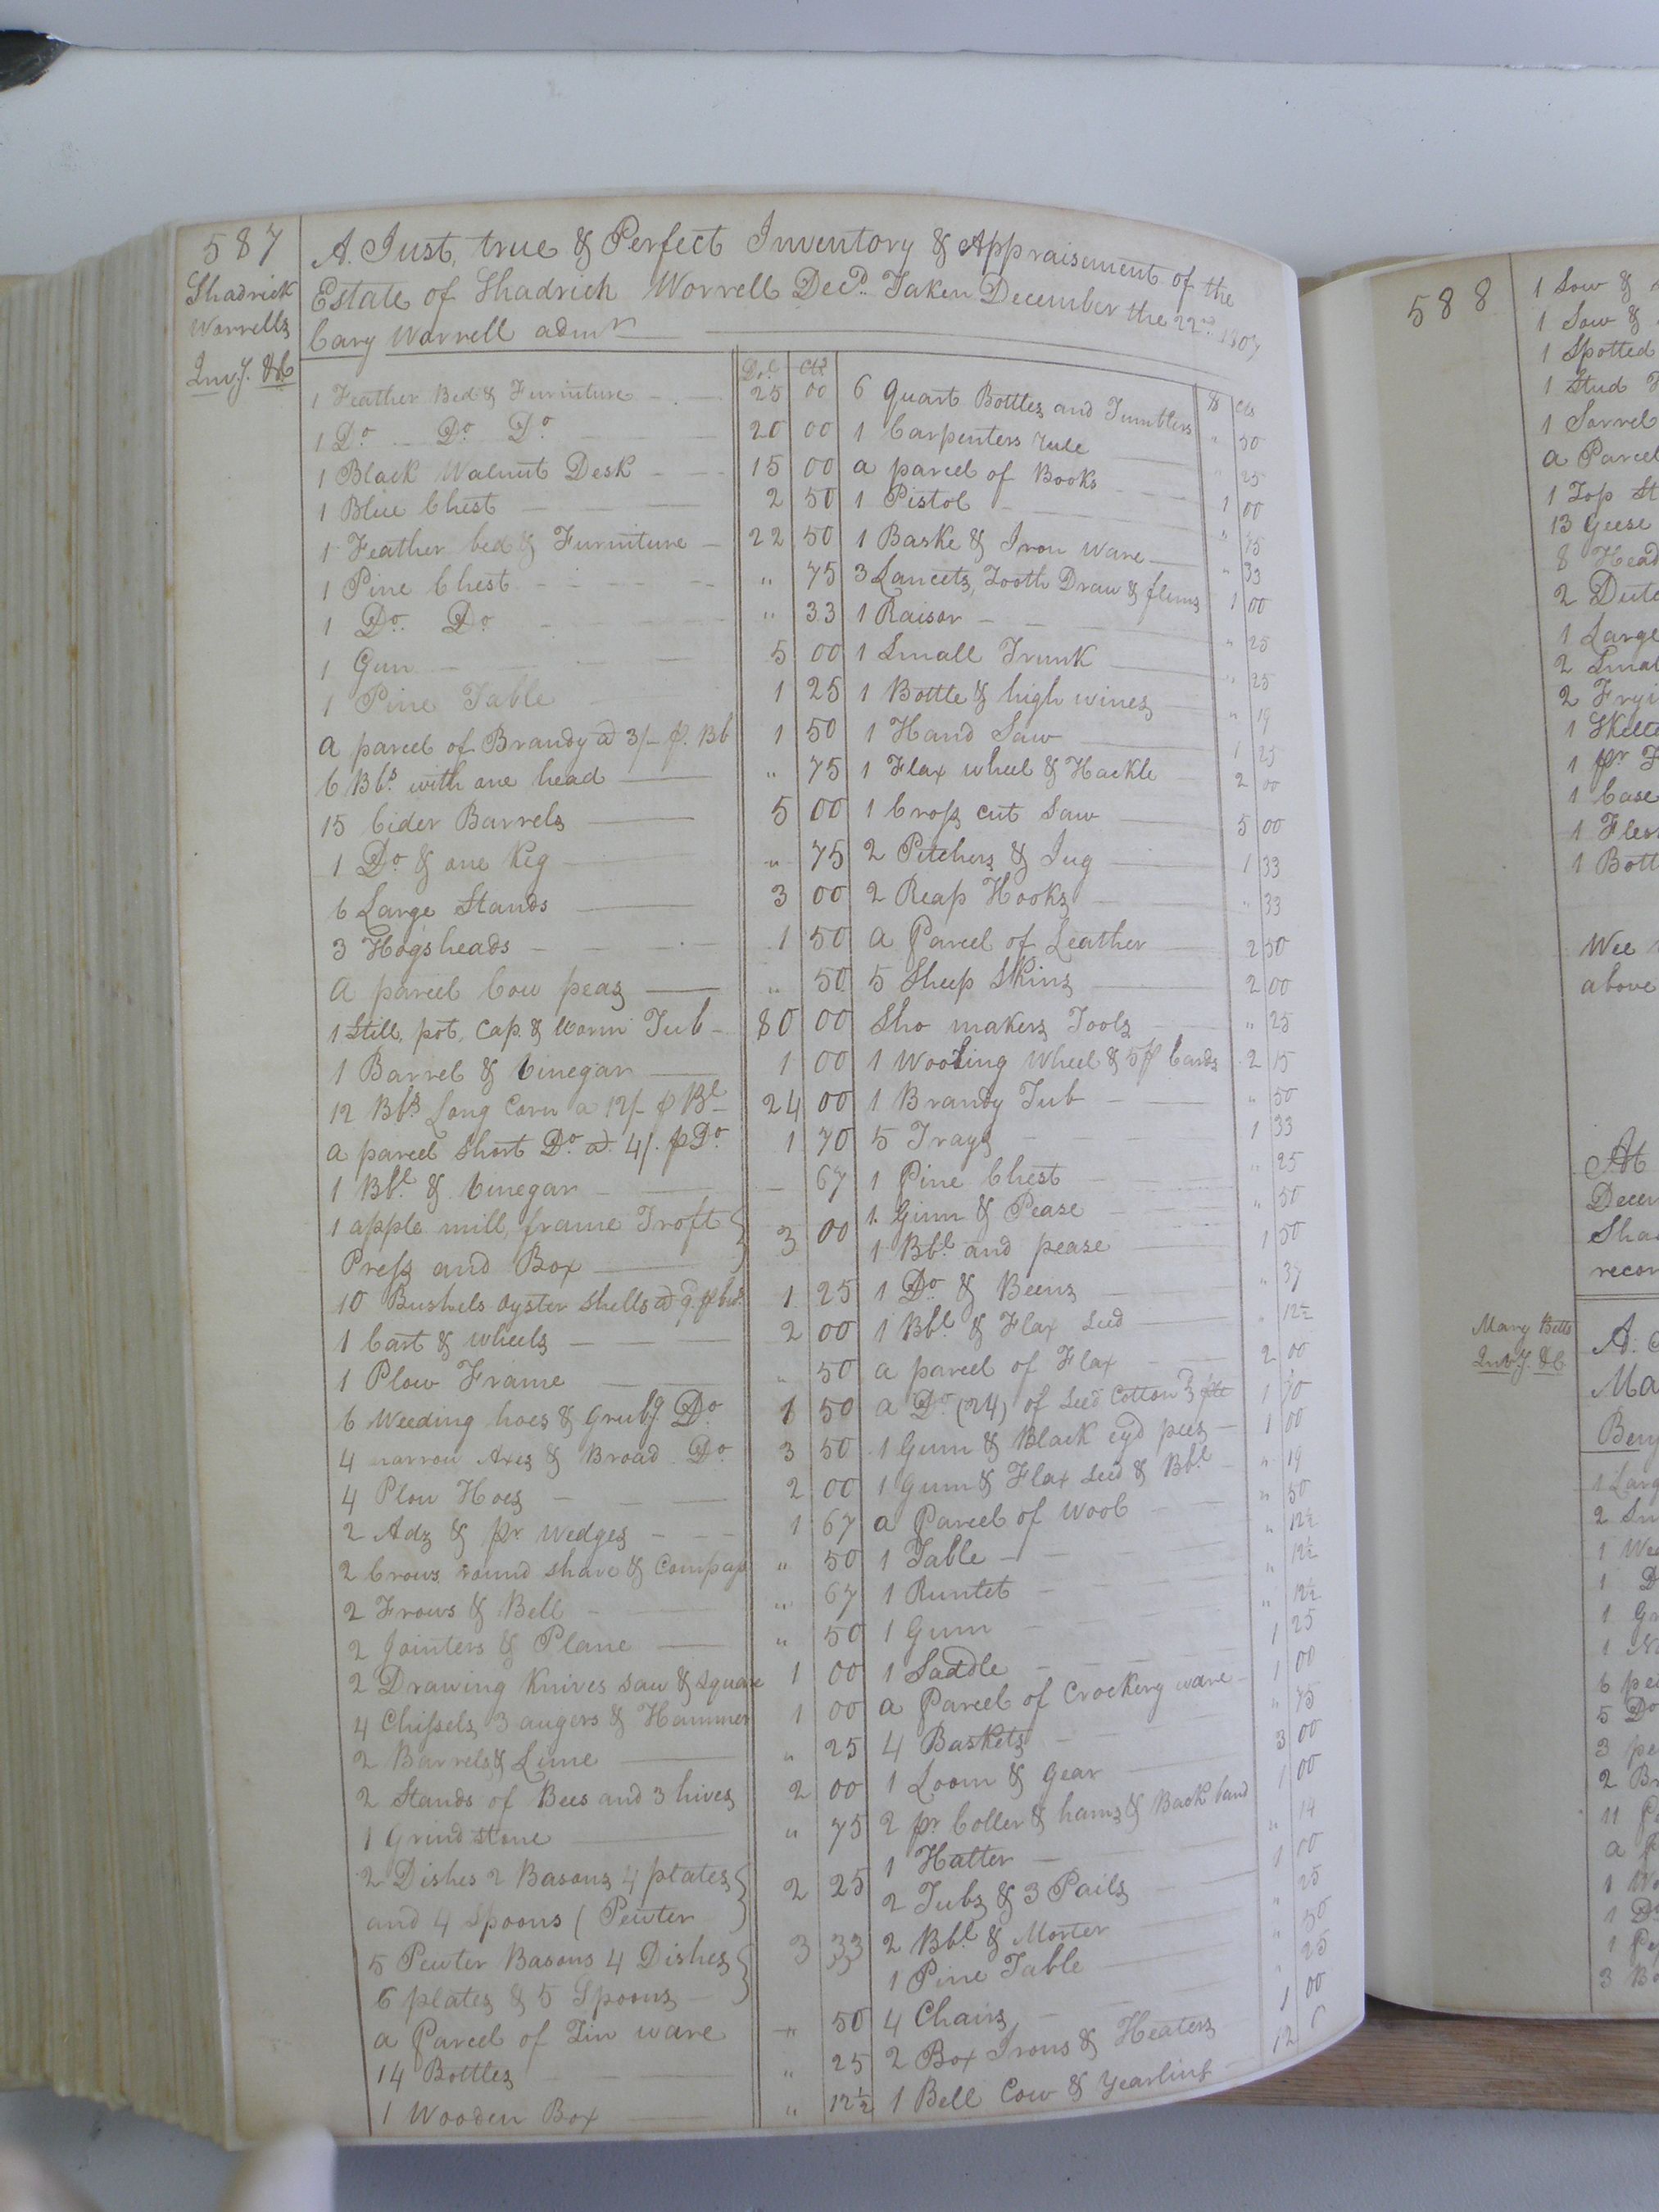 587
Shadrick
Worrells
Inv.y. &c
A. Just, true & Perfect Inventory & Appraisement of the
Estate of Shadrich Worrell Decd. Taken December the 22nd 1807
Cary Worrell admr
Dols Cts
1 Feather Bed & Furniture 25 00
1 Do Do Do 20 00
1 Black Walnut Desk 15 00
1 Blue Chest 2 50
1 Feather bed & Furniture 22 50
1 Pine Chest " 75
1 Do. Do " 33
1 Gun 5 00
1 Pine Table 1 25
a parcel of Brandy a 3/- p. Bb 1 50
6 Bbs. with one head " 75
15 Cider Barrels 5 00
1 Do & one Keg " 75
6 Large Stands 3 00
3 Hogsheads 1 50
A parcel Cow peas " 50
1 Still, pot, Cap. & Worm Tub 80 00
1 Barrel & Vinegar 1 00
12 Bbs Long Corn a 12/- p Bl 24 00
a parcel Short Do. a 4/. p Do 1 70
1 Bbl & Vinegar 67
1 apple mill, frame Troft }
Press and Box } 3 00
10 Bushels Oyster Shells a 9. p bus. 1 25
1 Cart & wheels 2 00
1 Plow Frame " 50
6 Weeding hoes & Grubg. Do 1 50
4 narrow Axes & Broad Do 3 50
4 Plow Hoes 2 00
2 Adz & pr. Wedges 1 67
2 Crows round shave & Compass " 50
2 Frows & Bell " 67
2 Jointers & Plane " 50
2 Drawing Knives Saw & Square 1 00
4 Chissels, 3 augers & Hammer 1 00
2 Barrels & Lime " 25
2 Stands of Bees and 3 hives 2 00
1 Grind stone " 75
2 Dishes 2 Basons 4 plates }
and 4 Spoons ( Pewter } 2 25
5 Pewter Basons 4 Dishes }
6 plates & 5 Spoons } 3 33
a Parcel of Tin ware " 50
14 Bottles " 25
1 Wooden Box " 12½
$ Cts
6 Quart Bottles and Tumblers " 50
1 Carpenters rule " 25
a parcel of Books 1 00
1 Pistol " 75
1 Baske & Iron Ware " 33
3 Lancets, Tooth Draw & flems 1 00
1 Raisor " 25
1 Small Trunk " 25
1 Bottle & high wines " 19
1 Hand Saw 1 25
1 Flax wheel & Hackle 2 00
1 Cross cut Saw 5 00
2 Pitchers & Jug 1 33
2 Reap Hooks " 33
A Parcel of Leather 2 50
5 Sheep Skins 2 00
Sho makers Tools " 25
1 Wooling Wheel & 5 p Cards 2 15
1 Brandy Tub " 50
5 Trays 1 33
1 Pine Chest " 25
1 Gum & Pease " 50
1 Bbl and pease 1 50
1 Do & Beens " 37
1 Bbl & Flax Seed " 12½
a parcel of Flax 2 00
a Do (24) of Seed Cotton 1 70
1 Gum & Black eyd pees 1 00
1 Gum & Flax Seed & Bbl " 19
a Parcel of Wool " 50
1 Table " 12½
1 Runlet " 12½
1 Gum " 12½
1 Saddle 1 25
a Parcel of Crockery ware 1 00
4 Baskets " 75
1 Loom & Gear 3 00
2 pr Coller & hams & Back band 1 00
1 Halter " 14
2 Tubs & 3 Pails 1 00
2 Bbl & Morter " 25
1 Pine Table " 50
4 Chairs " 25
2 Box Irons & Heaters 1 00
1 Bell Cow & Yearling 12
588
1 Sow &
1 Sow &
1 Spotted
1 Stud
1 Sorrel
a Parcel
1 Top
13 Geese
8 Head
2
1 Large
2
2
1
1 pr
1 Case
1
1
Wee
above
At
Mary Betts
Invy. &c
A.
1
2
1
1
1
1
6
5 Do
3
2
11
a
1
1
1
3